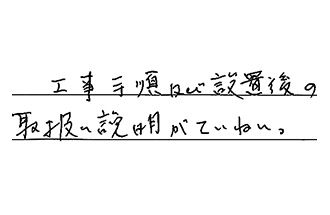 工事手順及び設置後の
取扱い説明がていねい。